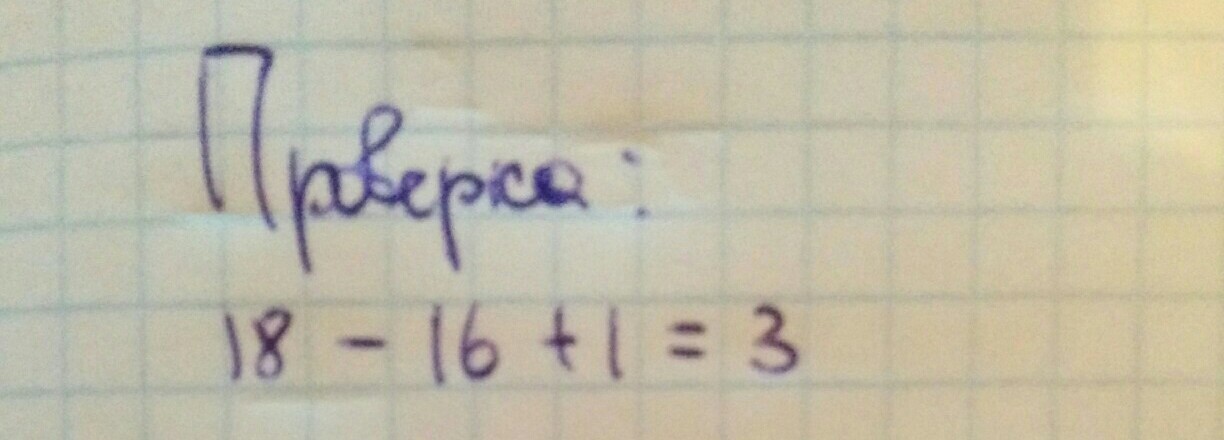 Проверка:
18 - 16 + 1 = 3